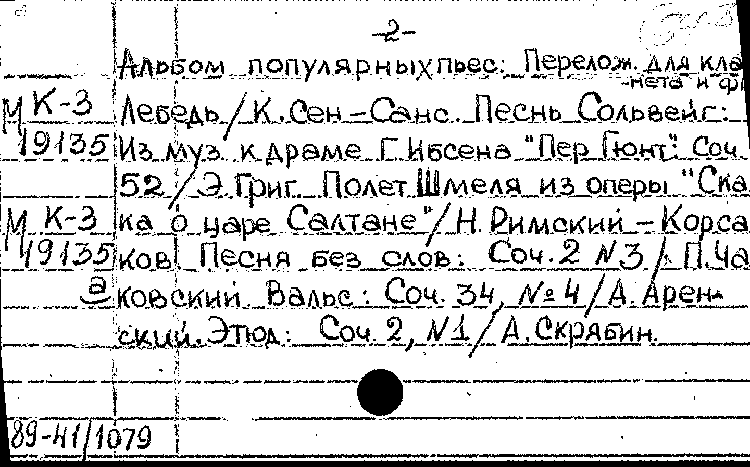 -2-
Альбом популярных пьес: Перелож. для кла
-нета и ф
М К-3 Лебедь / К. Сен-Санс. Песнь Сольвейг:
19135 Из муз. к драме Г. Ибсена "Пер Гюнт": Соч.
52 / Э. Григ. Полет Шмеля из оперы "Ска
М К-3 ка о царе Салтане" / Н. Римский-Корса
19135 ков. Песня без слов: Соч. 2 N3 / П. Ча
а ковский. Вальс: Соч. 34, №4 / А. Арен-
ский. Этюд: Соч. 2, N1 / А. Скрябин.
89-41/1079